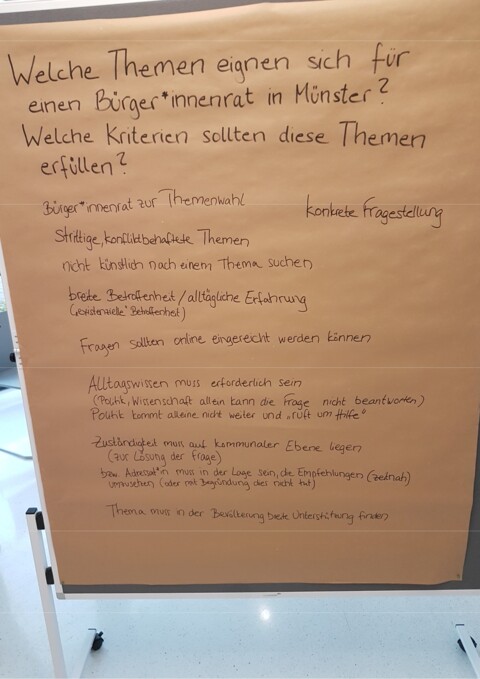 Welche Themen eignen sich für
einen Bürger*innenrat in Münster?
Welche Kriterien sollten diese Themen
erfüllen?
Bürger*innenrat zur Themenwahl
konkrete Fragestellung
Strittige, konfliktbehaftete Themen
nicht künstlich nach einem Thema suchen
breite Betroffenheit / alltägliche Erfahrung
("existenzielle" Betroffenheit)
Fragen sollten online eingereicht werden können
Alltagswissen muss erforderlich sein
(Politik, Wissenschaft allein kann die Frage nicht beantworten)
Politik kommt alleine nicht weiter und "ruft um Hilfe"
Zuständigkeit muss auf kommunaler Ebene liegen
(zur Lösung der Frage)
bzw. Adressat*in muss in der Lage sein, die Empfehlungen (zeitnah)
umzusetzen (oder mit Begründung dies nicht tut)
Thema muss in der Bevölkerung breite Unterstützung finden